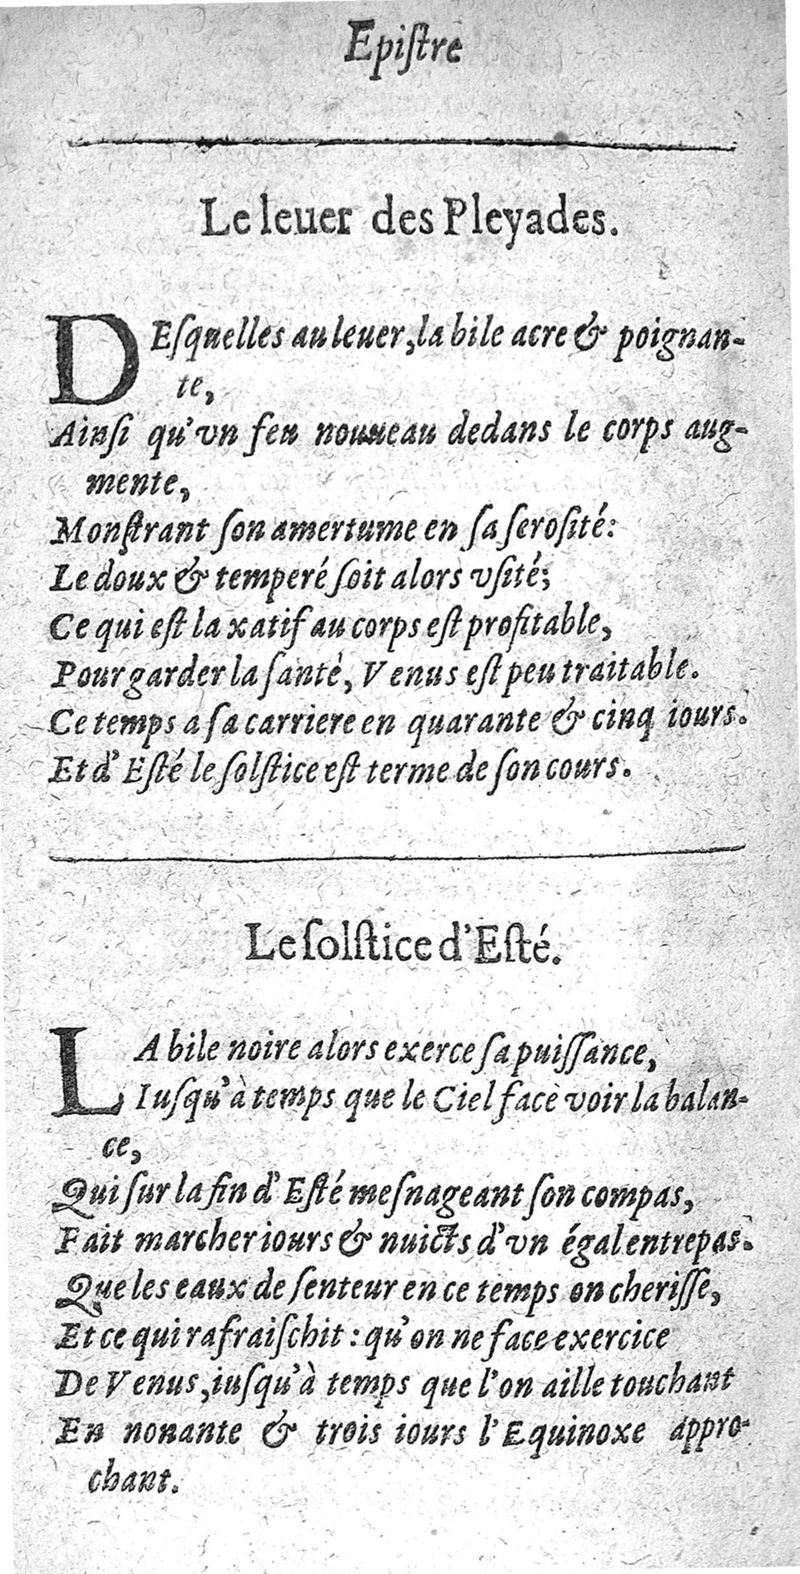 Epiſtre
Le leuer des Pleyades.
DEſquelles au leuer, la bile acre & poignan-
te,
Ainſi qu'vn feu nouueau dedans le corps aug-
mente,
Monſtrant ſon amertume en ſa ſeroſité:
Le doux & temperé ſoit alors vſité;
Ce qui eſt laxatif au corps eſt profitable,
Pour garder la ſanté, Venus eſt peu traitable.
Ce temps a ſa carriere en quarante & cinq iours.
Et d'Eſté le ſolſtice eſt terme de ſon cours.
Le ſolſtice d'Eſté.
LA bile noire alors exerce ſa puiſſance,
Iuſqu'à temps que le Ciel face voir la balan-
ce,
Qui ſur la fin d'Eſté meſnageant ſon compas,
Fait marcher iours & nuicts d'vn égal entrepas.
Que les eaux de ſenteur en ce temps on cheriſſe,
Et ce qui rafraiſchit : qu'on ne face exercice
De Venus, iuſqu'à temps que l'on aille touchant
En nonante & trois iours l'Equinoxe appro-
chant.